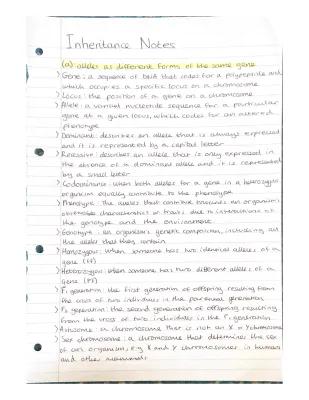 Inheritance Notes
(a) alleles as different forms of the same gene
> Gene: a sequence of DNA that codes for a polypeptide and
which occupies a specific locus on a chromosome
> Locus: the position of a gene on a chromosome
> Allele: a variant nucleotide sequence for a particular
gene at a given locus, which codes for an altered
phenotype
> Dominant: describes an allele that is always expressed
and it is represented by a capital letter
> Recessive: describes an allele that is only expressed in
the absence of a dominant allele and it is represented
by a small letter
> Codominance: when both alleles for a gene in a heterozygous
organism equally contribute to the phenotype
> Phenotype: The alleles that contribute towards an organism's
observable characteristics or traits due to interactions of
the genotype and the environment
> Genotype: an organism's genetic composition, including all
the alleles that they contain
> Homozygous: when someone has two identical alleles of a
gene (FF)
> Heterozygous: when someone has two different alleles of a
gene (Ff)
> F₁ generation: the first generation of offspring resulting from
the cross of two individuals in the parental generation
> F₂ generation: the second generation of offspring resulting
from the cross of two individuals in the F₁ generation
> Autosome: a chromosome that is not an X or Y chromosome
> Sex chromosome: a chromosome that determines the sex
of an organism, e.g X and Y chromosomes in humans
and other mammals